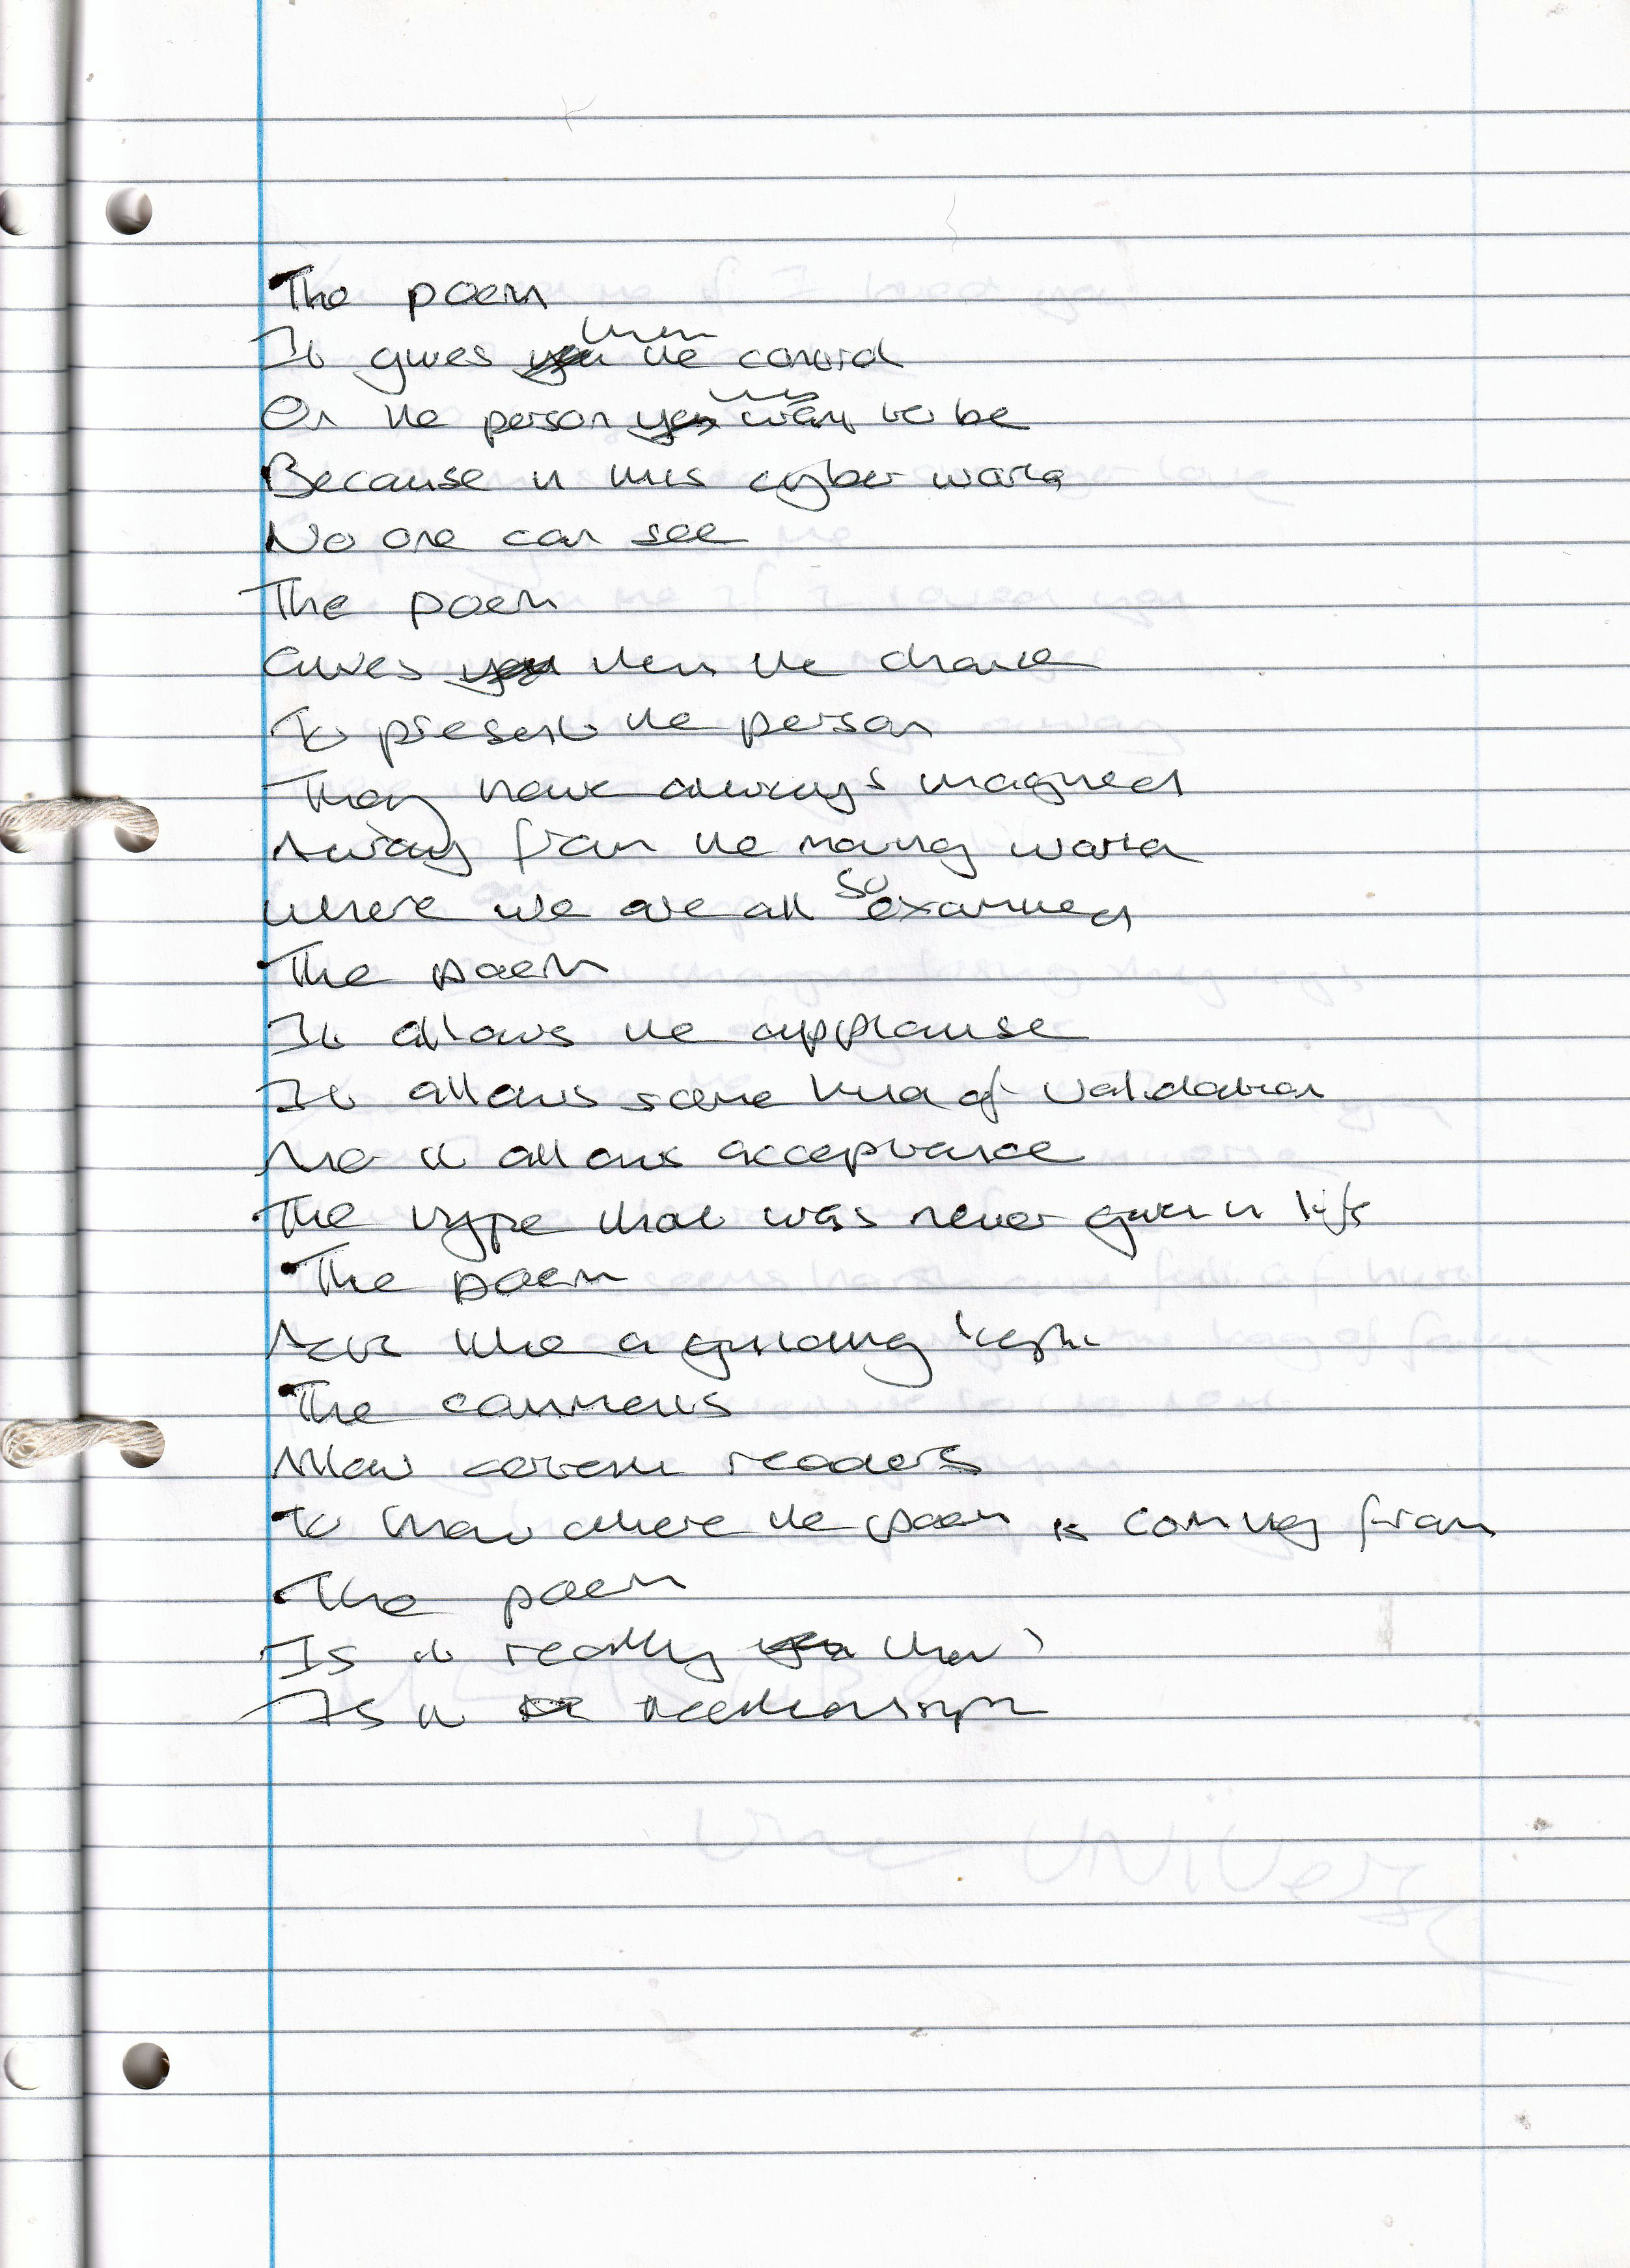 The poem
It gives them the control
On the person they want to be
Because in this cyber world
No one can see
The poem
Gives them the chance
To present the person
They have always imagined
Away from the moving world
Where we are all so examined
The poem
It allows the applause
It allows some kind of validation
And it allows acceptance
The type that was never given in life
The poem
Acts like a guiding light
The comments
Allow certain readers
To know where the poem is coming from
The poem
Is it really them?
Is it